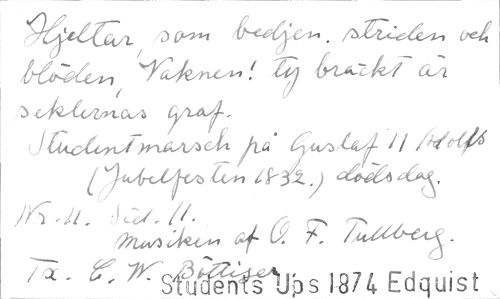 Hjeltar, som bedjen. striden och
blöden, Vaknen! ty bräckt är
seklernas graf.
Studentmarsch på Gustaf II Adolfs
(Jubelfesten 1832.) dödsdag.
Nr. 11. Sid. 11.
musiken af O. F. Tullberg.
Tx. C. W. Böttiger.
Students Ups 1874 Edquist